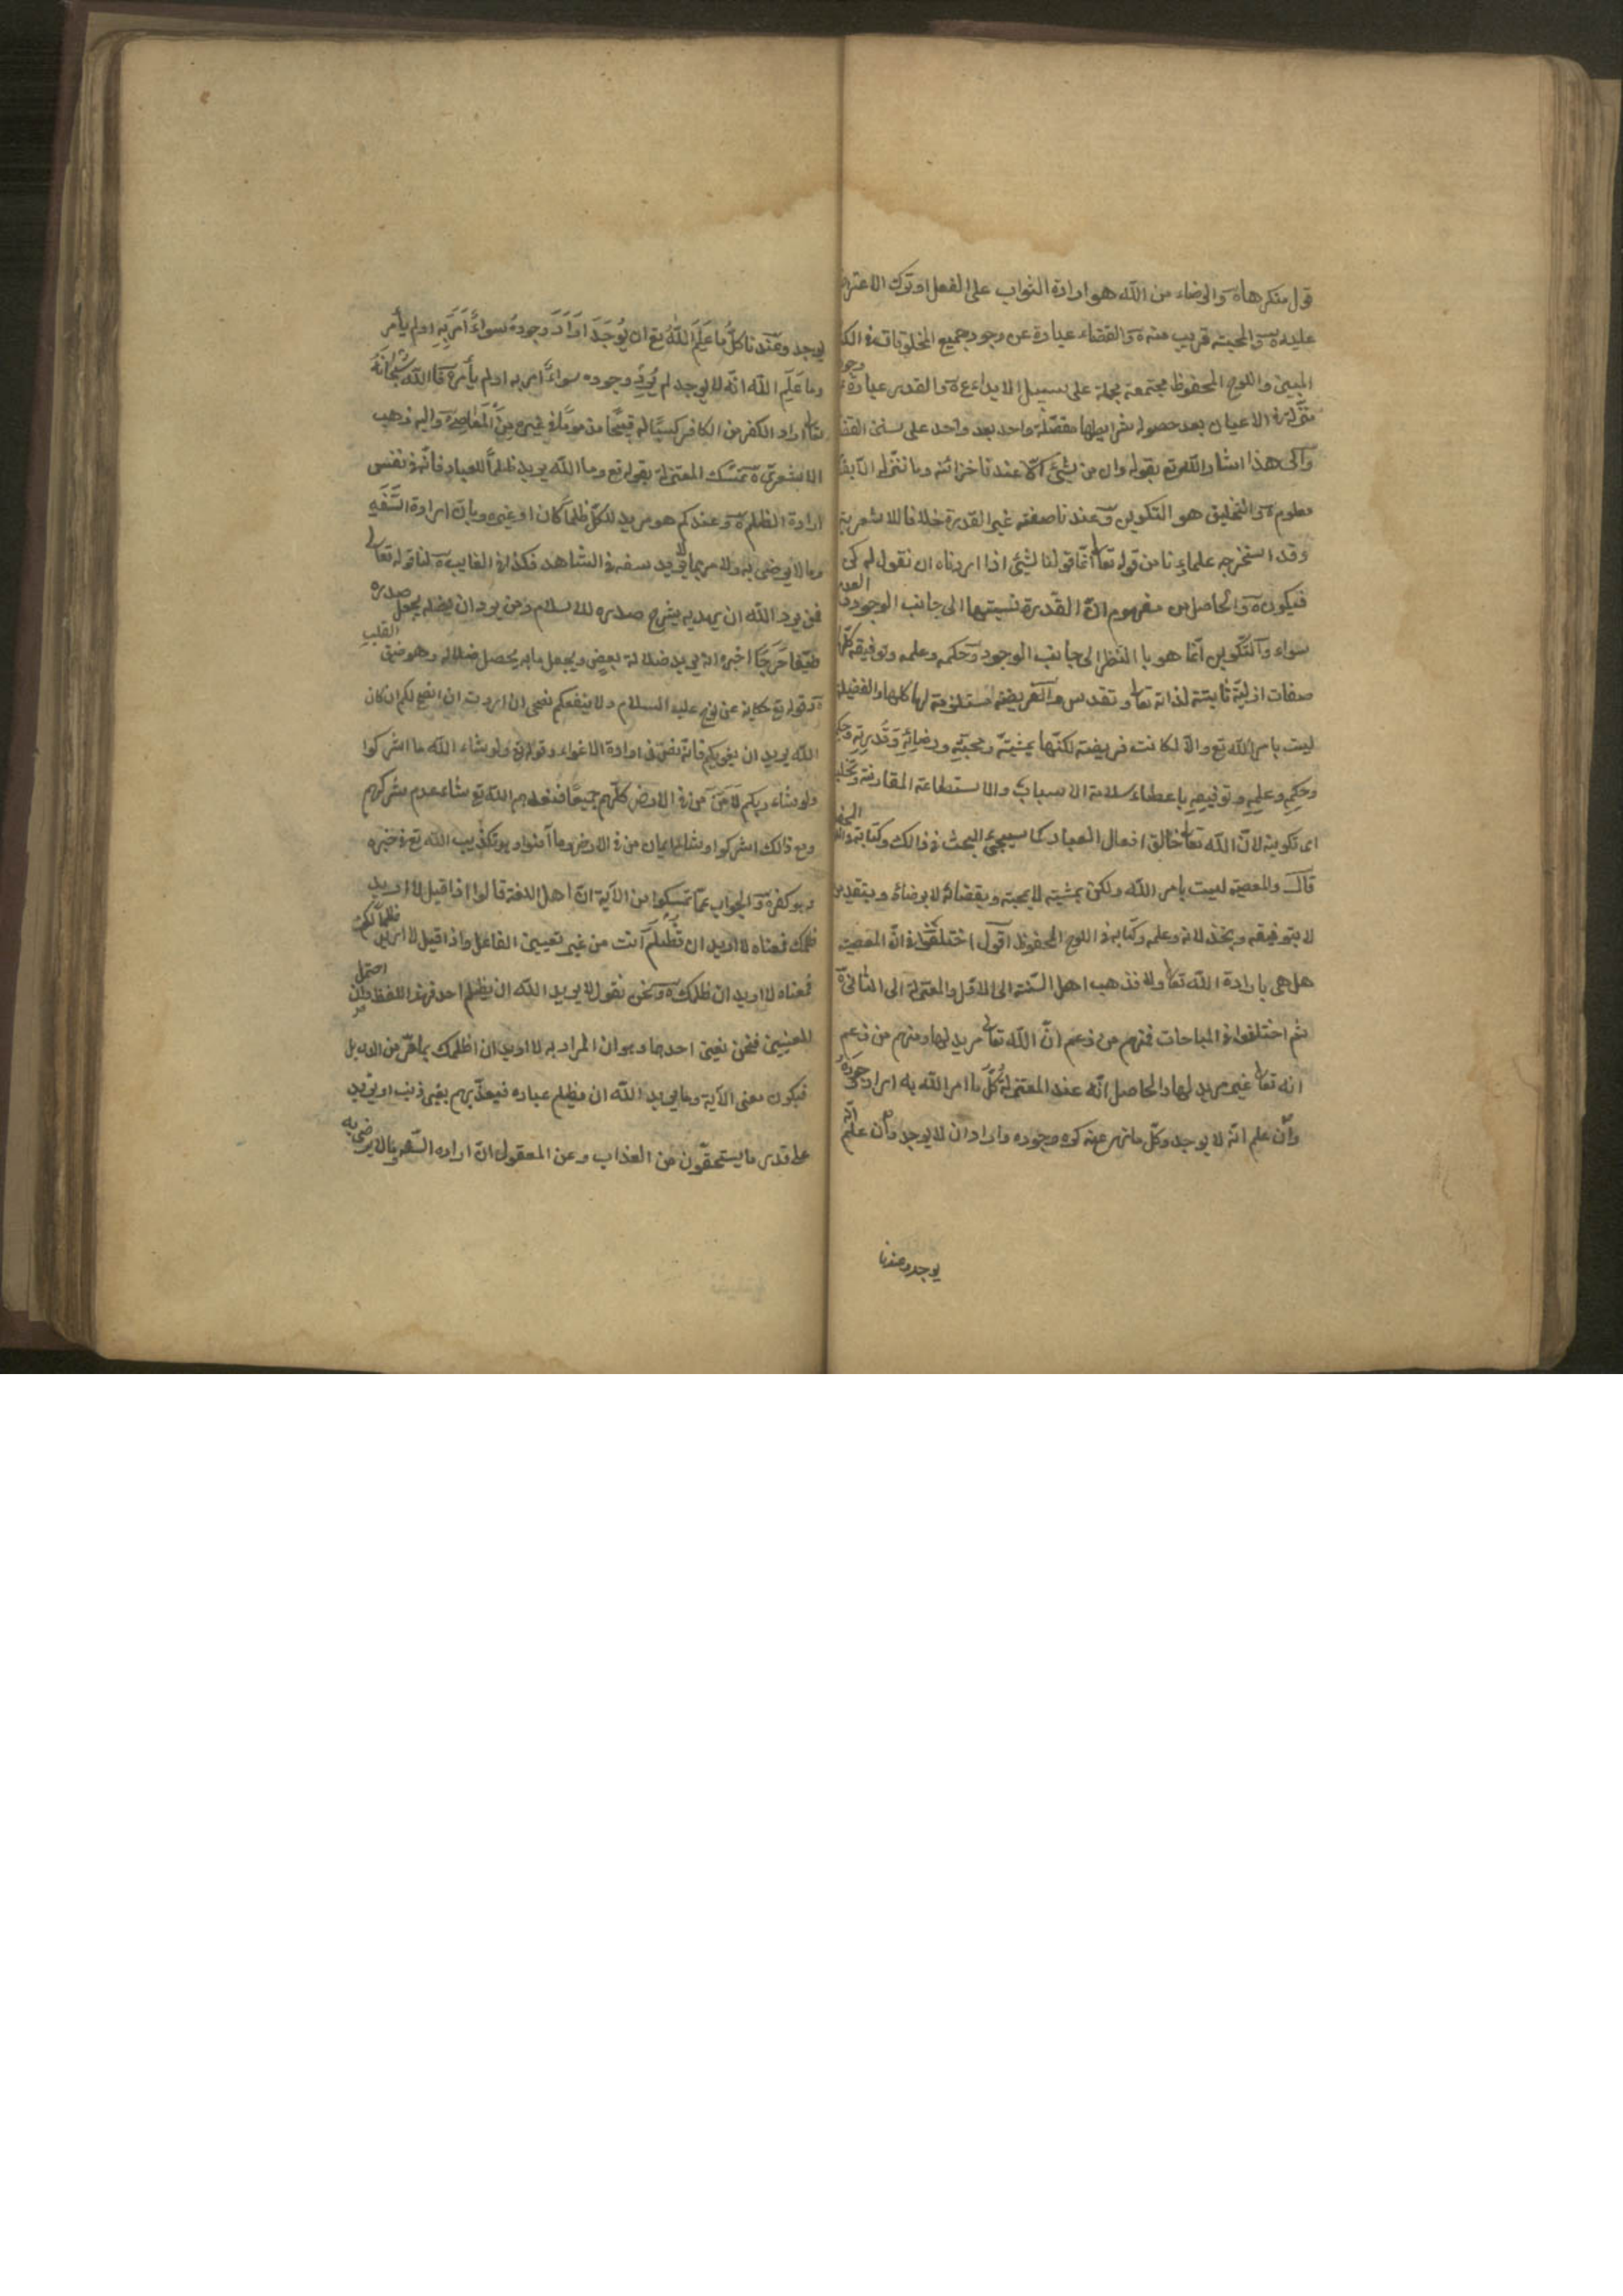 قول منكرها ة والرضاء من الله هو ارادة الثواب على الفعل او ترك الاعتراض
عليه ة والمحبة قريب منه ة والقضاء عبارة عن وجود جميع المخلوقات فى الكتاب
المبين واللوح المحفوظ مجتمعة مجملة على سبيل الابداع ة والقدر عبارة عن وجود
منزلة فى الاعيان بعد حصول شرايطها مفصّلة واحد بعد واحد على سنن القضا
والى هذا اشار الله تع بقوله وان من شئ الّا عندنا خزائنه وما ننزله الّا بقدر
معلوم ة والتخليق هو التكوين وعندنا صفته غير القدرة خلافا للاشعرية
وقد استخرجه علماءنا من قوله تعالى انّما قولنا لشئ اذا اردناه ان نقول له كن
فيكون ة والحاصل من مفهومه انّ القدرة نسبتها الى جانب الوجود والعدم
سواء والتكوين انّما هو با النظر الى جانب الوجود وحكمه وعلمه وتوفيقه كلّها
صفات ازليّة ثابتة لذاته تعالى وتقدس والفريضة مستلزمة لها كلها والفضيلة
ليت بامر الله تع والّا لكانت فريضة لكنّها بمشيّته ومحبّته ورضائه وقدرته وحكم
وحكمه وعلمه وتوفيقه باعطاء سلامة الاسباب والاستطاعة المقارنة وتخليقه
اى تكوينه لانّ الله تعالى خالق افعال العباد كما سيجئ البحث فى ذالك وكتابته
قال والمعصية ليست بامر الله ولكن بمشيته لا بمحبته وبقضائه لا برضائه وبتقديره
لا بتوفيقه وبخذلانه وعلمه وكتابه فى اللوح المحفوظ اقول اختلفوا فى انّ المعصية
هل هى بارادة الله تعالى اولا فذهب اهل السّنّة الى الاوّل والمعتزلة الى الثانى ة
ثم اختلفوا فى المباحات فمنهم من زعم انّ الله تعالى مريد لها ومنهم من زعم
انه تعالى غير مريد لها والحاصل انّه عند المعتزلة كلّ ما امر الله به اراد وجوده
وان علم انّه لا يوجد وكلّ ما نهى عنه كره وجوده واراد ان لا يوجد وان علم انّه
يوجد وعندنا
يوجد وعندنا كلّ ما علم الله تع ان يوجد اراد وجوده سواء امر به او لم يأمر
وما علم الله انّه لا يوجد لم يرد وجوده سواء امر به او لم يأمر ة فا الله سبحانه
تعالى اراد الكفر من الكافر كسبًا له قبيحًا مذمومًا وكذا فى غيره من المعاصى ة واليه ذهب
الاشعرىّ ة تمسّك المعتزلة بقوله تع وما الله يريد ظلمًا للعباد فانّه فى نفسى
ارادة الظلم ة وعندكم هو مريد للكلّ ظلمًا كان او غيره وبان ارادة السّفه
وما لا يرضى به ولا مر بما لا يريد سفه فى الشاهد فكذا فى الغايب ة لنا قوله تعالى
فمن يرد الله ان يهديه يشرح صدره للاسلام ومن يرد ان يضله يجعل صدره
ضيّقا حرجًا اخبر انّه يريد ضلالة بعض ويجعل ما به يحصل ضلاله وهو ضيق القلب
ة وقوله تع حكاية عن نوح عليه السلام ولا ينفعكم نصحى ان اردت ان انصح لكم ان كان
الله يريد ان يغويكم فانّه نصّ فى ارادة الاغواء وقوله تع ولو شاء الله ما اشركوا
ولو شاء ربكم لآمن من فى الارض كلّهم جميعًا فنقول هم الله تع شاء عدم شركهم
ومع ذالك اشركوا وشاء ايمان من فى الارض وما آمنوا وهو تكذيب الله تع فى خبره
وهو كفر ة والجواب عمّا تمسّكوا من الآية انّ اهل اللغة قالوا اذا قيل لا اريد
ظلمك فمعناه لا اريد ان تُظلم انت من غير تعيين الفاعل واذا قيل لا اريد ظلمًا لكم
فمعناه لا اريد ان ظلمك ة ونحن نقول لا يريد الله ان يظلم احد فهذا اللفظ وان احتمل
للمعنيين فنحن نعين احدهما وهو ان المراد به لا اريد ان اظلمك بما مرّ من الدلايل
فيكون معنى الآية وما يريد الله ان يظلم عباده فيعذّبهم بغير ذنب او يزيد
على قدر ما يستحقّون من العذاب وعن المعقول انّ ارادة السّفه وما لا يرضى به